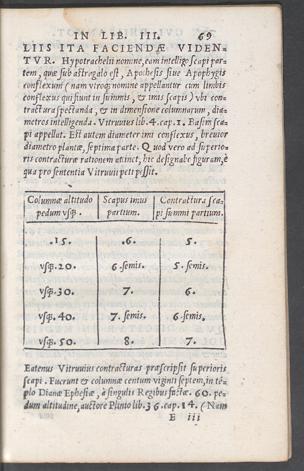 IN LIB. III. 69
LIIS ITA FACIENDÆ VIDEN-
TVR. Hypotrachelij nomine, eam intellige scapi par-
tem, quæ sub astragalo est, Apothesis siue Apophygis
conflexum (nam vtroq; nomine appellantur cum limbis
conflexus qui fiunt in summis, & imis scapis) vbi con-
tractura spectanda, & in dimensione columnarum, dia-
metros intelligenda. Vitruuius lib. 4. cap. 1. Basim sca-
pi appellat. Est autem diameter imi conflexus, breuior
diametro plantæ, septima parte. Quod vero ad superio-
ris contracturæ rationem atinet, hic designabo figuram, è
qua pro sententia Vitruuij peti possit.
Columnæ altitudo pedum vsq;. | Scapus imus partium. | Contractura sca-pi summi partium.
.15. | .6. | 5.
vsq;.20. | 6. semis. | 5. semis.
vsq;.30. | 7. | 6.
vsq;.40. | 7. semis. | 6. semis.
vsq;.50. | 8. | 7.
Eatenus Vitruuius contracturas præscripsit superioris
scapi. Fuerunt & columnæ centum viginti septem, in tẽ-
plo Dianæ Ephesiæ, à singulis Regibus factæ. 60. pe-
dum altitudine, auctore Plinio lib. 36. cap. 14. (Nam
E iii